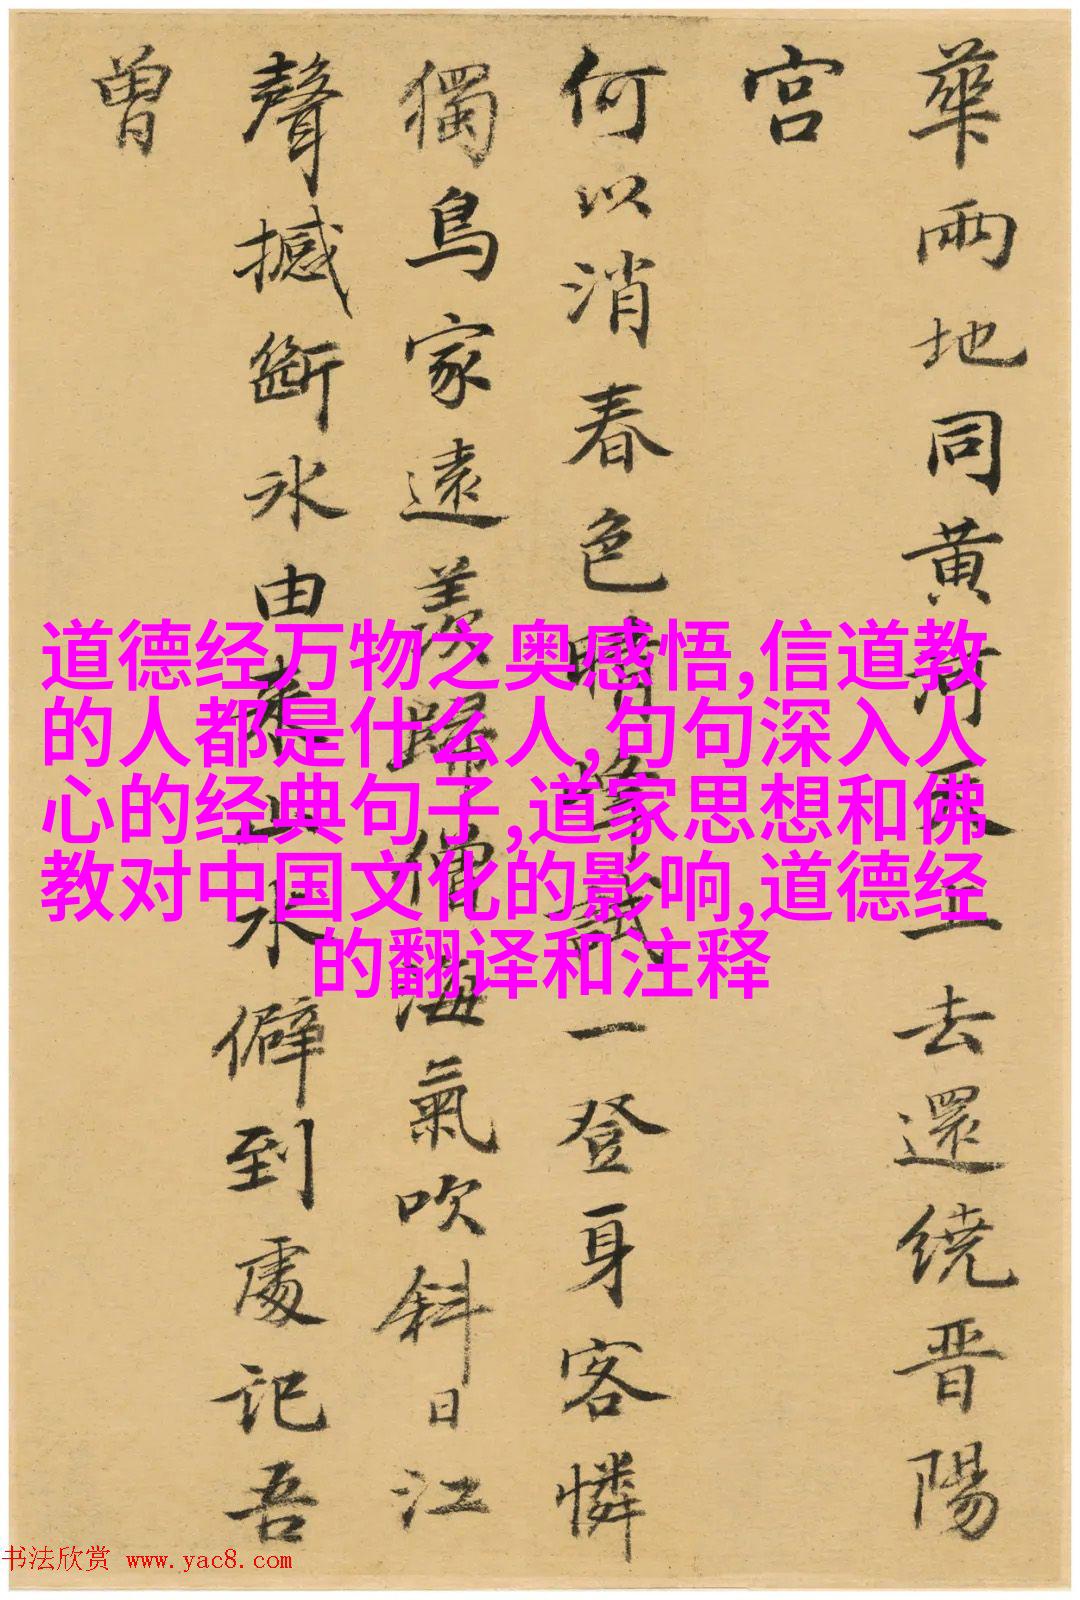 華兩地同黄河天上去還繞晋陽
宮
何以消春色晴峰試一登身客憐
獨鳥家遠羨歸僧海氣吹斜日江
聲撼斷冰由來山水僻到處記吾
曾
道德经万物之奥感悟,信道教
的人都是什么人,句句深入人
心的经典句子,道家思想和佛
教对中国文化的影响,道德经
的翻译和注释
书法欣赏 www.yac8.com